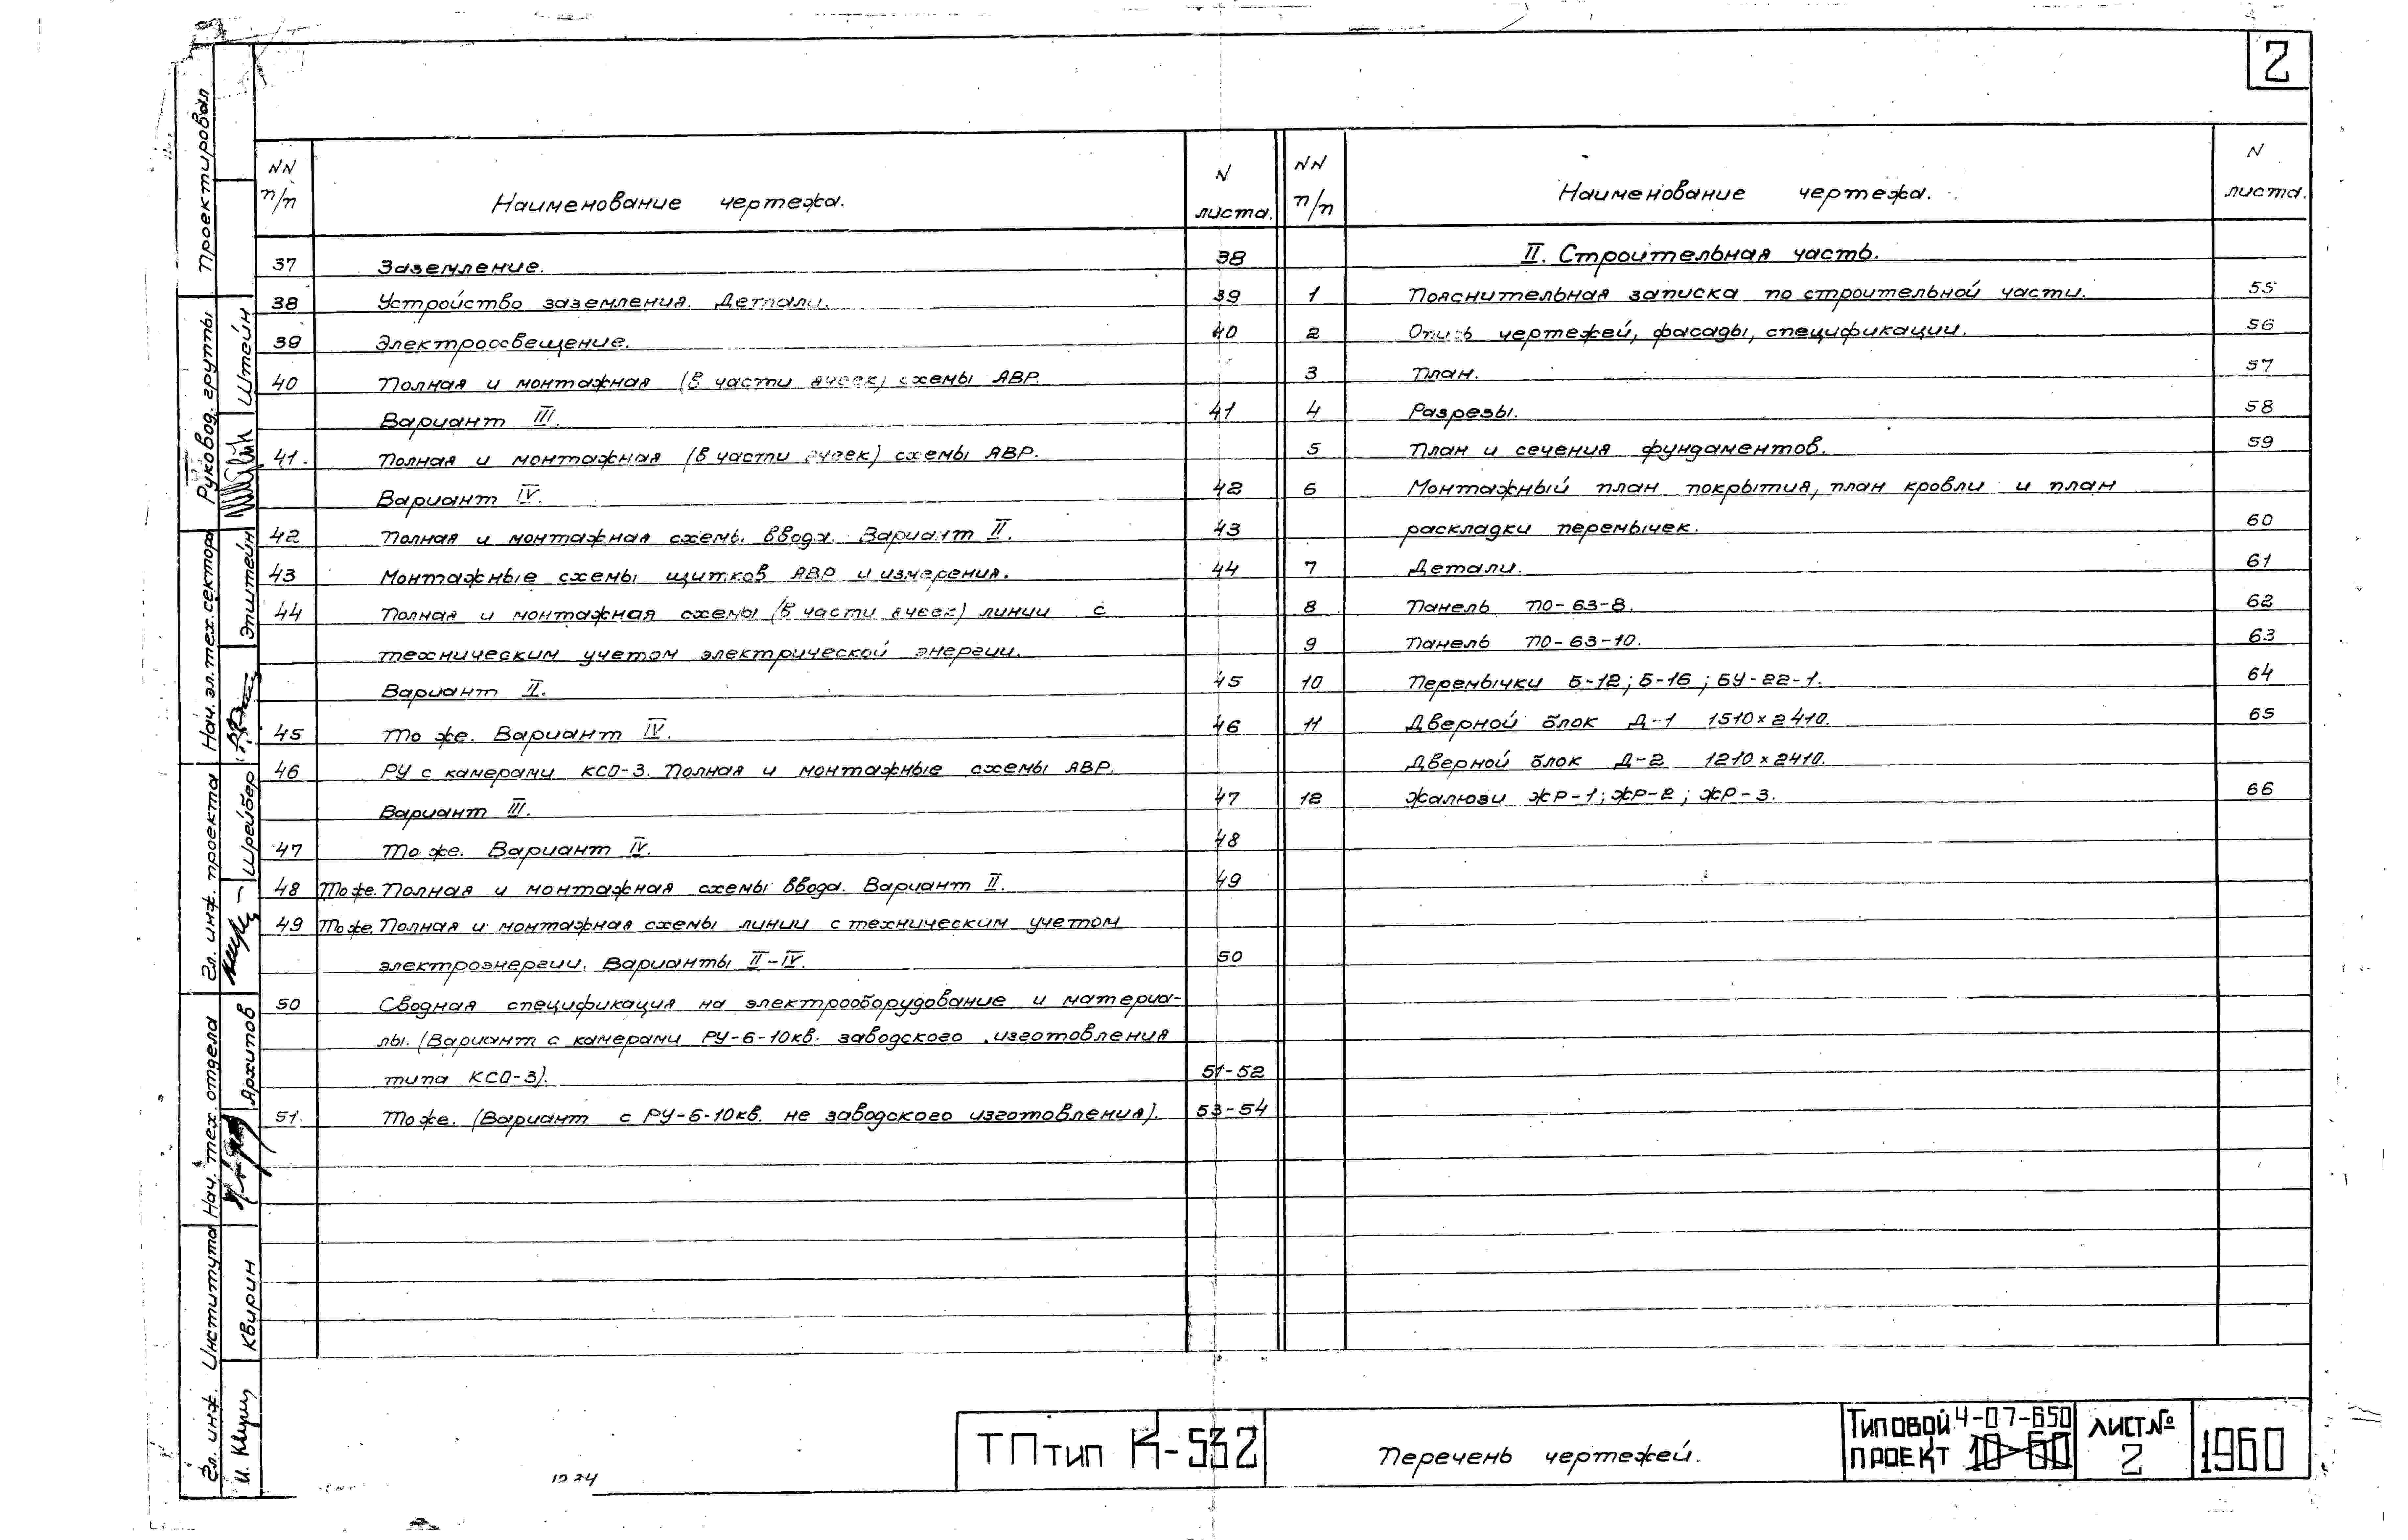 2
NN п/п Наименование чертежа. N листа.
37 Заземление. 38
38 Устройство заземления. Детали. 39
39 Электроосвещение. 40
40 Полная и монтажная (в части ячеек) схемы АВР.
Вариант III. 41
41. Полная и монтажная (в части ячеек) схемы АВР.
Вариант IV. 42
42 Полная и монтажная схемы ввода. Вариант II. 43
43 Монтажные схемы щитков АВР и измерения. 44
44 Полная и монтажная схемы (в части ячеек) линии с
техническим учетом электрической энергии.
Вариант II. 45
45 То же. Вариант IV. 46
46 РУ с камерами КСО-3. Полная и монтажные схемы АВР.
Вариант III. 47
47 То же. Вариант IV. 48
48 То же. Полная и монтажная схемы ввода. Вариант II. 49
49 То же. Полная и монтажная схемы линии с техническим учетом
электроэнергии. Варианты II-IV. 50
50 Сводная спецификация на электрооборудование и материа-
лы. (Вариант с камерами РУ-6-10кв. заводского изготовления
типа КСО-3). 51-52
51. То же. (Вариант с РУ-6-10кв. не заводского изготовления). 53-54
NN п/п Наименование чертежа. N листа.
II. Строительная часть.
1 Пояснительная записка по строительной части. 55
2 Опись чертежей, фасады, спецификации. 56
3 План. 57
4 Разрезы. 58
5 План и сечения фундаментов. 59
6 Монтажный план покрытия, план кровли и план
раскладки перемычек. 60
7 Детали. 61
8 Панель ПО-63-8. 62
9 Панель ПО-63-10. 63
10 Перемычки Б-12; Б-16; БУ-22-1. 64
11 Дверной блок Д-1 1510×2410. 65
Дверной блок Д-2 1210×2410.
12 Жалюзи ЖР-1; ЖР-2; ЖР-3. 66
Проектировал
Руковод. группы Штейн
Нач. эл. тех. сектора Эпштейн
Гл. инж. проекта Шрейбер
Нач. тех. отдела Архипов
Гл. инж. Института Квирин
ТП тип К-532
Перечень чертежей.
Типовой 4-07-650
проект 10-60
Лист №
2
1960